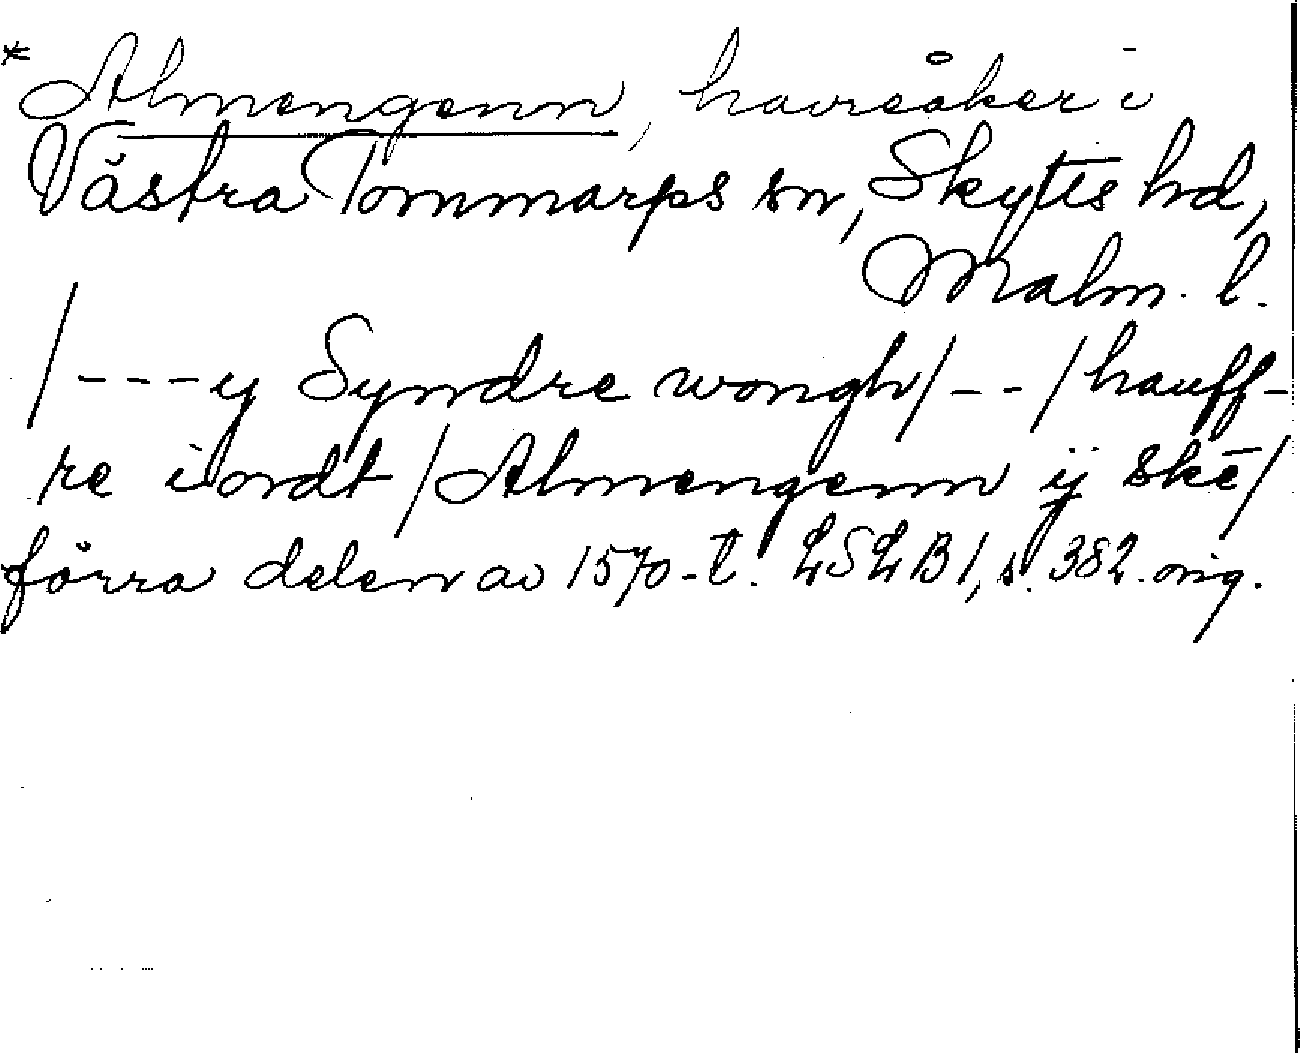 * Almengenn, havreåker i
Västra Tommarps sn, Skytts hd,
Malm. l.
/---y Syndre wongh/--/hauff-
re iordt/Almengenn ij skē/
förra delen av 1570-t. LSLB1, s. 382. orig.